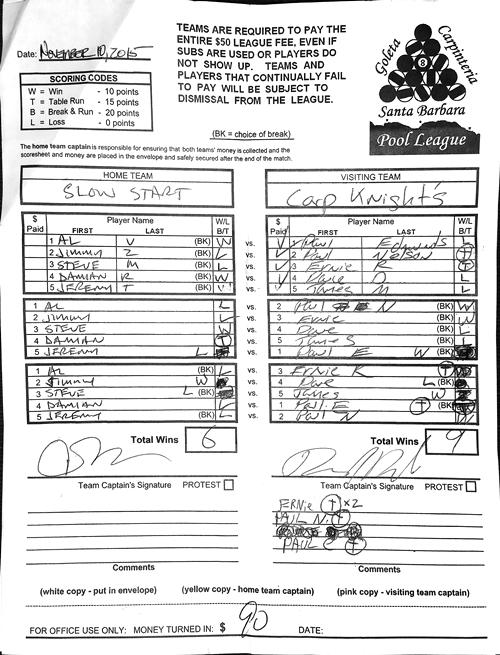 Date: November 10, 2015
TEAMS ARE REQUIRED TO PAY THE
ENTIRE $50 LEAGUE FEE, EVEN IF
SUBS ARE USED OR PLAYERS DO
NOT SHOW UP. TEAMS AND
PLAYERS THAT CONTINUALLY FAIL
TO PAY WILL BE SUBJECT TO
DISMISSAL FROM THE LEAGUE.
Goleta Carpinteria
8
Santa Barbara
Pool League
SCORING CODES
W = Win - 10 points
T = Table Run - 15 points
B = Break & Run - 20 points
L = Loss - 0 points
(BK = choice of break)
The home team captain is responsible for ensuring that both teams' money is collected and the
scoresheet and money are placed in the envelope and safely secured after the end of the match.
HOME TEAM VISITING TEAM
SLOW START Carp Knight's
$ Paid Player Name FIRST LAST W/L B/T $ Paid Player Name FIRST LAST W/L B/T
1 AL V (BK) W vs. 1 Paul Edwards L
2 Jimmy Z (BK) L vs. 2 Paul Nelson T
3 STEVE M (BK) L vs. 3 Ernie R T
4 DAMIAN R (BK) W vs. 4 Dave D L
5 JEREMY T (BK) vs. 5 James M L
1 AL L vs. 2 Paul N (BK) W
2 Jimmy L vs. 3 Ernie (BK) W
3 STEVE W vs. 4 Dave (BK) L
4 DAMIAN T vs. 5 James (BK) L
5 JEREMY L vs. 1 Paul E W (BK)
1 AL (BK) L vs. 3 Ernie R T
2 Jimmy W (BK) vs. 4 Dave L (BK)
3 STEVE L (BK) vs. 5 James W
4 DAMIAN L vs. 1 Paul E T (BK)
5 JEREMY (BK) L vs. 2 Paul N
Total Wins 6 Total Wins 9
Team Captain's Signature PROTEST Team Captain's Signature PROTEST
ERNIE T x2
PAUL N. T
PAUL E T
Comments Comments
(white copy - put in envelope) (yellow copy - home team captain) (pink copy - visiting team captain)
FOR OFFICE USE ONLY: MONEY TURNED IN: $ 90 DATE: